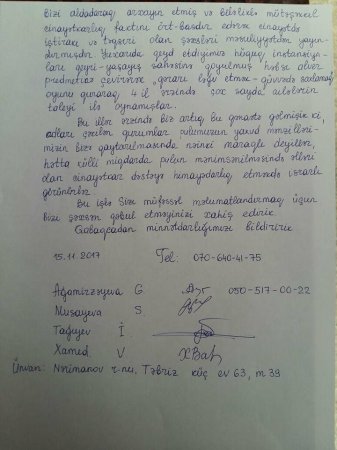 bizi aldadaraq arxayın etmiş və beləliklə mütəşəkkil
cinayətkarlıq faktını ört-basdır edərək cinayətdə
iştirakı və təqsiri olan şəxsləri məsuliyyətdən yayın-
dırmışdır. Yuxarıda qeyd etdiyimiz hüquq instansiya-
ları qeyri-yaşayış sahəsinə qoyulmuş həbsi alver
predmetinə çevirərək, qərarı ləğv etmək - qüvvədə saxlamaq
oyunu quraraq, 4 il ərzində çox sayda ailələrin
taleyi ilə oynamışlar.
Bu illər ərzində biz artıq bu qənaətə gəlmişik ki,
adları çəkilən qurumlar pulumuzun yaxud mənzilləri-
mizin bizə qaytarılmasında nəinki maraqlı deyillər,
hətta külli miqdarda pulun mənimsənilməsində əlləri
olan cinayətkar dəstəyə himayədarlıq etməkdə israrlı
görünürlər.
Bu işlə Sizi müfəssəl məlumatlandırmaq üçün
bizi şəxsən qəbul etməyinizi xahiş edirik.
Qabaqcadan minnətdarlığımızı bildiririk
15.11.2017 Tel: 070-640-41-75
Ağamirzəyeva G. 050-517-00-22
Musayeva S.
Tağıyev İ.
Xamed. V XBah
Ünvan: Nərimanov r-nu, Təbriz küç ev 63, m 39